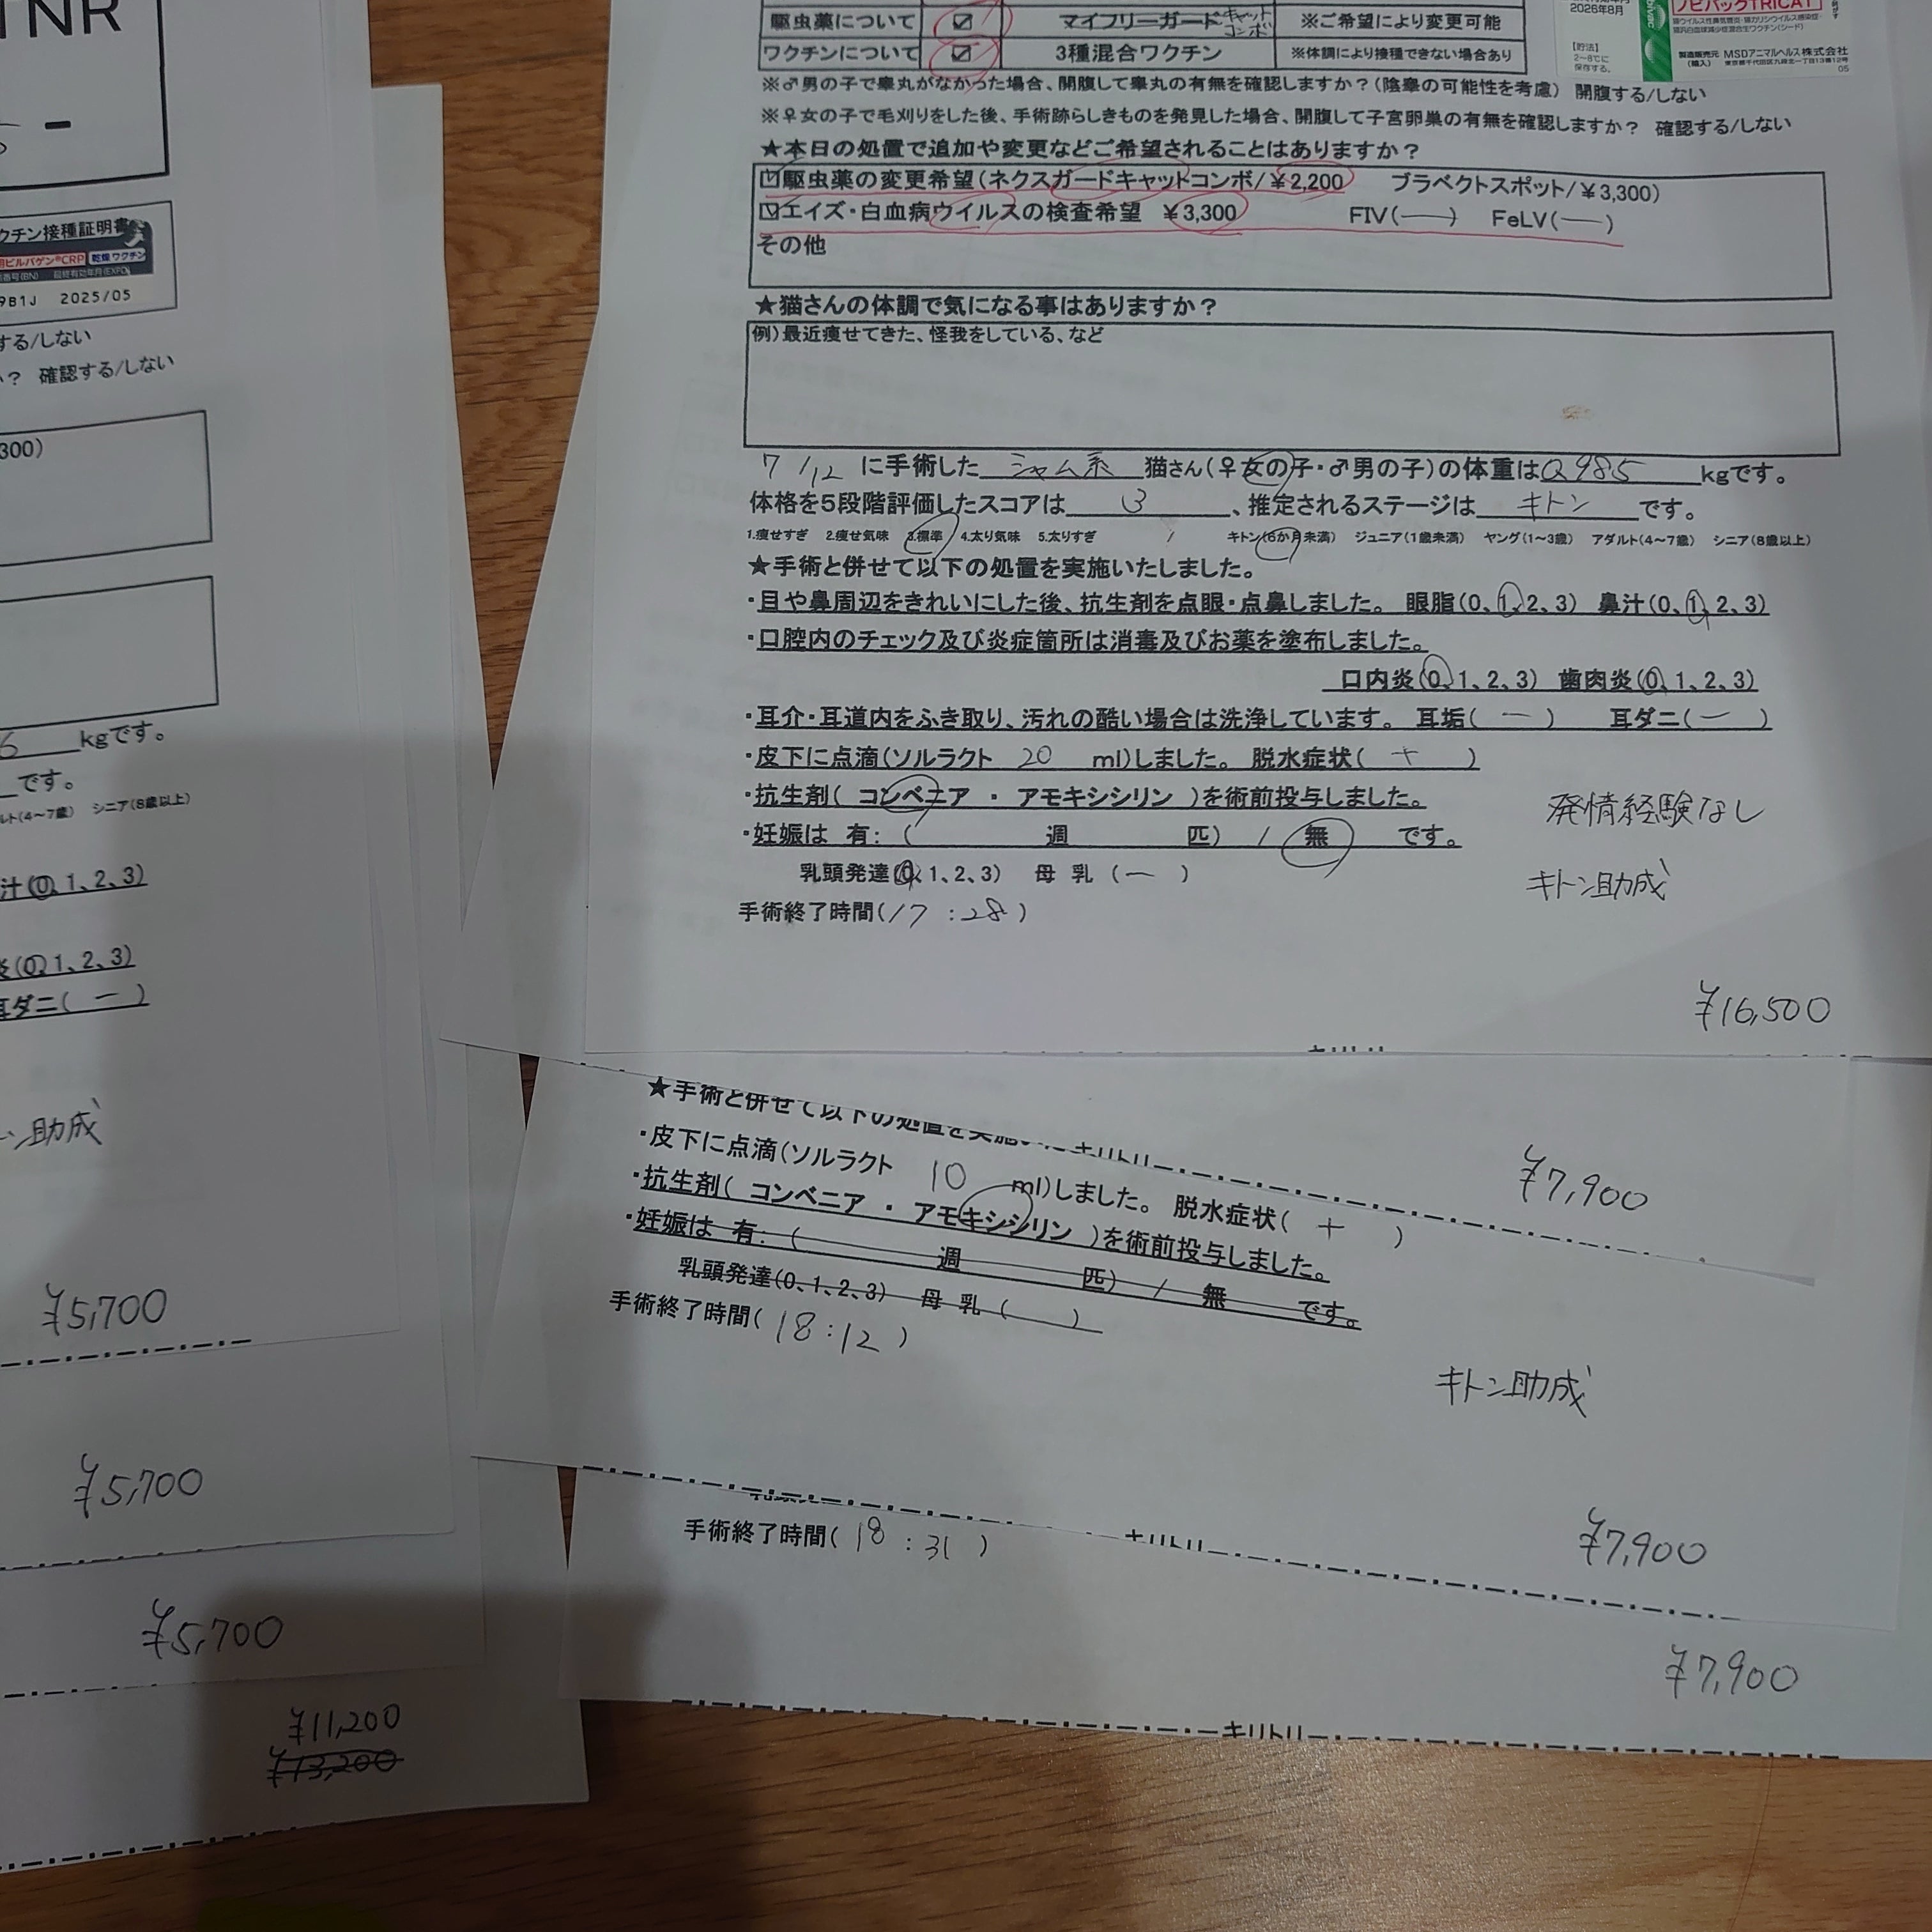 TNR
クチン接種証明書
用ビルバゲン®CRP 乾燥ワクチン
番号(BN) 最終有効年月(EXP)
9B1J 2025/05
する/しない
か? 確認する/しない
300)
6 kgです。
です。
ルト(4～7歳) シニア(8歳以上)
汁(0、1、2、3)
炎(0、1、2、3)
耳ダニ( ー )
ン助成
¥5,700
¥5,700
¥5,700
¥11,200
¥13,200
駆虫薬について ☑ マイフリーガード キャットコンボ ※ご希望により変更可能
ワクチンについて ☑ 3種混合ワクチン ※体調により接種できない場合あり
2026年8月
【貯法】
2~8℃に
保存する。
ノビバックTRICAT
製造販売元 MSDアニマルヘルス株式会社
(輸入) 東京都千代田区九段北一丁目13番12号
05
※♂男の子で睾丸がなかった場合、開腹して睾丸の有無を確認しますか?(陰睾の可能性を考慮) 開腹する/しない
※♀女の子で毛刈りをした後、手術跡らしきものを発見した場合、開腹して子宮卵巣の有無を確認しますか? 確認する/しない
★本日の処置で追加や変更などご希望されることはありますか?
☑駆虫薬の変更希望(ネクスガードキャットコンボ/¥2,200 ブラベクトスポット/¥3,300)
☑エイズ・白血病ウイルスの検査希望 ¥3,300 FIV(ー) FeLV(ー)
その他
★猫さんの体調で気になる事はありますか?
例)最近痩せてきた、怪我をしている、など
7/12 に手術した シャム系 猫さん(♀女の子・♂男の子)の体重は0.985 kgです。
体格を5段階評価したスコアは 3 、推定されるステージは キトン です。
1.痩せすぎ 2.痩せ気味 3.標準 4.太り気味 5.太りすぎ キトン(6か月未満) ジュニア(1歳未満) ヤング(1～3歳) アダルト(4～7歳) シニア(8歳以上)
★手術と併せて以下の処置を実施いたしました。
・目や鼻周辺をきれいにした後、抗生剤を点眼・点鼻しました。 眼脂(0、1、2、3) 鼻汁(0、1、2、3)
・口腔内のチェック及び炎症箇所は消毒及びお薬を塗布しました。
口内炎(0、1、2、3) 歯肉炎(0、1、2、3)
・耳介・耳道内をふき取り、汚れの酷い場合は洗浄しています。 耳垢( ー ) 耳ダニ( ー )
・皮下に点滴(ソルラクト 20 ml)しました。 脱水症状( + )
・抗生剤( コンベニア ・ アモキシシリン )を術前投与しました。
・妊娠は 有: ( 週 匹) / 無 です。
乳頭発達(0、1、2、3) 母 乳 ( ー )
手術終了時間(17:28)
発情経験なし
キトン助成
¥16,500
キリトリ
★手術と併せて以下の処置を実施いた
キリトリ
¥7,900
・皮下に点滴(ソルラクト 10 ml)しました。 脱水症状( + )
・抗生剤( コンベニア ・ アモキシシリン )を術前投与しました。
・妊娠は 有: ( 週 匹) / 無 です。
乳頭発達(0、1、2、3) 母 乳 ( )
手術終了時間( 18:12 )
キトン助成
¥7,900
キリトリ
手術終了時間( 18:31 )
¥7,900
キリトリ